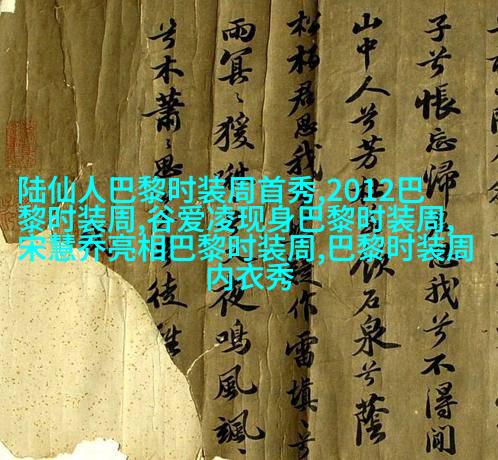 子兮悵忘歸我兮不得閒
山中人兮芳飲石泉兮蔭
松柏君思我作雷填〻兮
雨冥〻猨啾夜鳴風颯〻
兮木蕭〻思徒離
陆仙人巴黎时装周首秀,2012巴
黎时装周,谷爱凌现身巴黎时装周,
宋慧乔亮相巴黎时装周,巴黎时装周
内衣秀